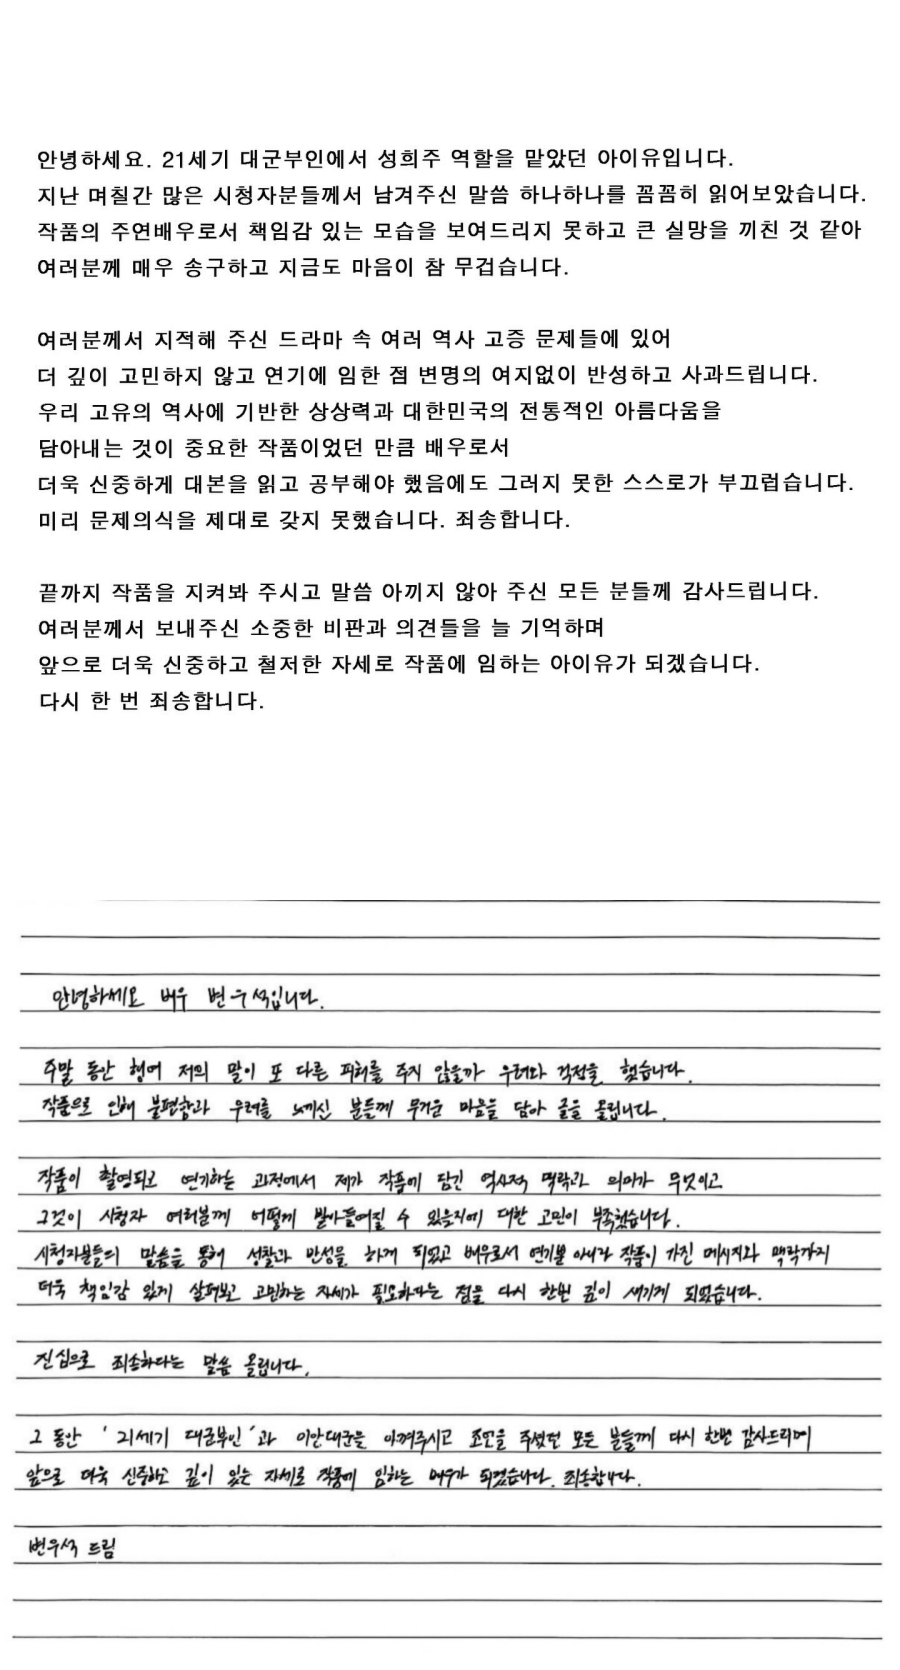 안녕하세요. 21세기 대군부인에서 성희주 역할을 맡았던 아이유입니다.
지난 며칠간 많은 시청자분들께서 남겨주신 말씀 하나하나를 꼼꼼히 읽어보았습니다.
작품의 주연배우로서 책임감 있는 모습을 보여드리지 못하고 큰 실망을 끼친 것 같아
여러분께 매우 송구하고 지금도 마음이 참 무겁습니다.
여러분께서 지적해 주신 드라마 속 여러 역사 고증 문제들에 있어
더 깊이 고민하지 않고 연기에 임한 점 변명의 여지없이 반성하고 사과드립니다.
우리 고유의 역사에 기반한 상상력과 대한민국의 전통적인 아름다움을
담아내는 것이 중요한 작품이었던 만큼 배우로서
더욱 신중하게 대본을 읽고 공부해야 했음에도 그러지 못한 스스로가 부끄럽습니다.
미리 문제의식을 제대로 갖지 못했습니다. 죄송합니다.
끝까지 작품을 지켜봐 주시고 말씀 아끼지 않아 주신 모든 분들께 감사드립니다.
여러분께서 보내주신 소중한 비판과 의견들을 늘 기억하며
앞으로 더욱 신중하고 철저한 자세로 작품에 임하는 아이유가 되겠습니다.
다시 한 번 죄송합니다.
안녕하세요 배우 변우석입니다.
주말 동안 혹여 저의 말이 또 다른 피해를 주지 않을까 우려와 걱정을 했습니다.
작품으로 인해 불편함과 우려를 느끼신 분들께 무거운 마음을 담아 글을 올립니다.
작품이 촬영되고 연기하는 과정에서 제가 작품에 담긴 역사적 맥락과 의미가 무엇이고
그것이 시청자 여러분께 어떻게 받아들여질 수 있을지에 대한 고민이 부족했습니다.
시청자분들의 말씀을 통해 성찰과 반성을 하게 되었고 배우로서 연기뿐 아니라 작품이 가진 메시지와 맥락까지
더욱 책임감 있게 살펴보고 고민하는 자세가 필요하다는 점을 다시 한번 깊이 새기게 되었습니다.
진심으로 죄송하다는 말씀 올립니다.
그 동안 '21세기 대군부인'과 이안대군을 아껴주시고 조언을 주셨던 모든 분들께 다시 한번 감사드리며
앞으로 더욱 신중하고 깊이 있는 자세로 작품에 임하는 배우가 되겠습니다. 죄송합니다.
변우석 드림